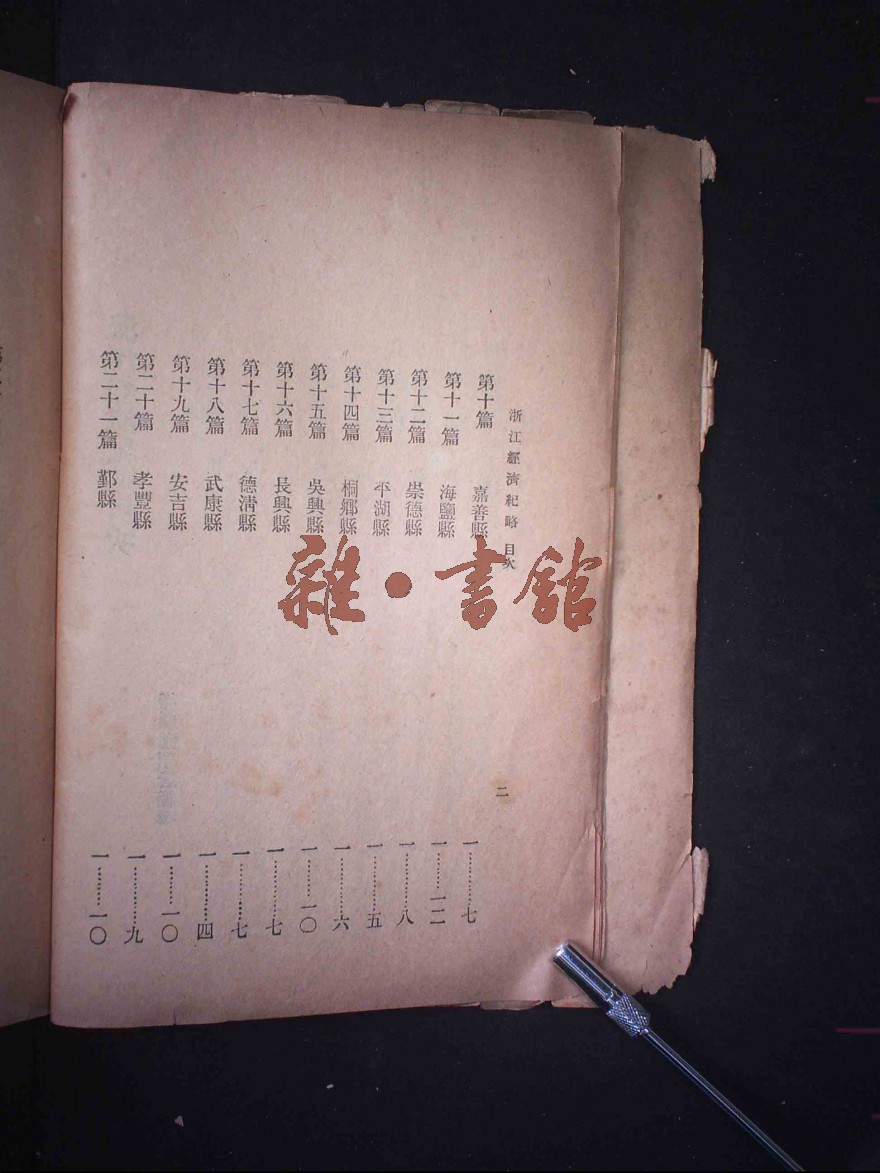 浙江經濟紀略 目次 二
第十篇 嘉善縣 一…………七
第十一篇 海鹽縣 一………一二
第十二篇 崇德縣 一…………八
第十三篇 平湖縣 一…………五
第十四篇 桐鄉縣 一…………六
第十五篇 吳興縣 一………一〇
第十六篇 長興縣 一…………七
第十七篇 德清縣 一…………七
第十八篇 武康縣 一…………四
第十九篇 安吉縣 一………一〇
第二十篇 孝豐縣 一…………九
第二十一篇 鄞縣 一………一〇
雜·書館